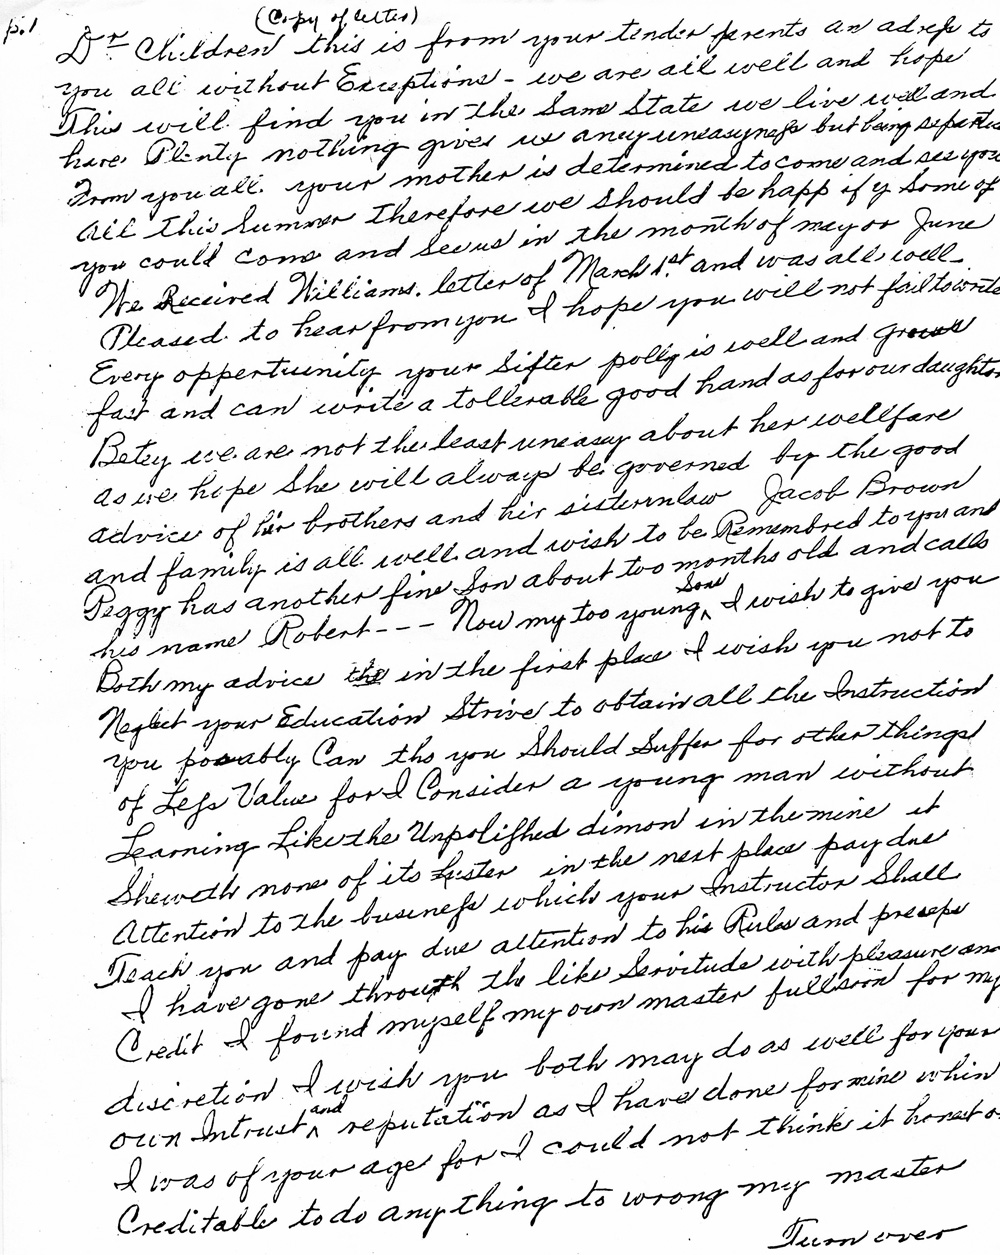 p.1
(Copy of letter)
Dr Children this is from your tender parents an adress to
you all without Exceptions - we are all well and hope
This will find you in the Same State we live well and
have Plenty nothing gives us aney uneasyness but being
From you all. your mother is determined to come and see you
all this Summer therefore we should be happ if y Some of
you could come and see us in the month of may or June
We Received Williams. letter of March 1.st and was all well
Pleased to hear from you I hope you will not fail to write
Every oppertunity your Sister polly is well and grows
fast and can write a tollerable good hand as for our daughter
Betsy we are not the least uneasy about her wellfare
as we hope She will always be governed by the good
advice of hir brothers and hir sister inlaw Jacob Brown
and family is all well and wish to be Remembred to you and
Peggy has another fine Son about too months old and calls
his name Robert - - - Now my too young Sons I wish to give you
Both my advice the in the first place I wish you not to
Neglect your Education Strive to obtain all the Instruction
you posably Can tho you Should Suffer for other things
of Less Value for I Consider a young man without
Learning Like the Unpolished dimon in the mine it
Sheweth none of its Luster in the next place pay due
Attention to the business which your Instructor Shall
Teach you and pay due attention to his Rules and preseps
I have gone through the like Servitude with pleasure and
Credit I found myself my own master full soon for my
discretion I wish you both may do as well for your
own Intrust and reputation as I have done for mine whin
I was of your age for I could not think it honest or
Creditable to do any thing to wrong my master
Turn over